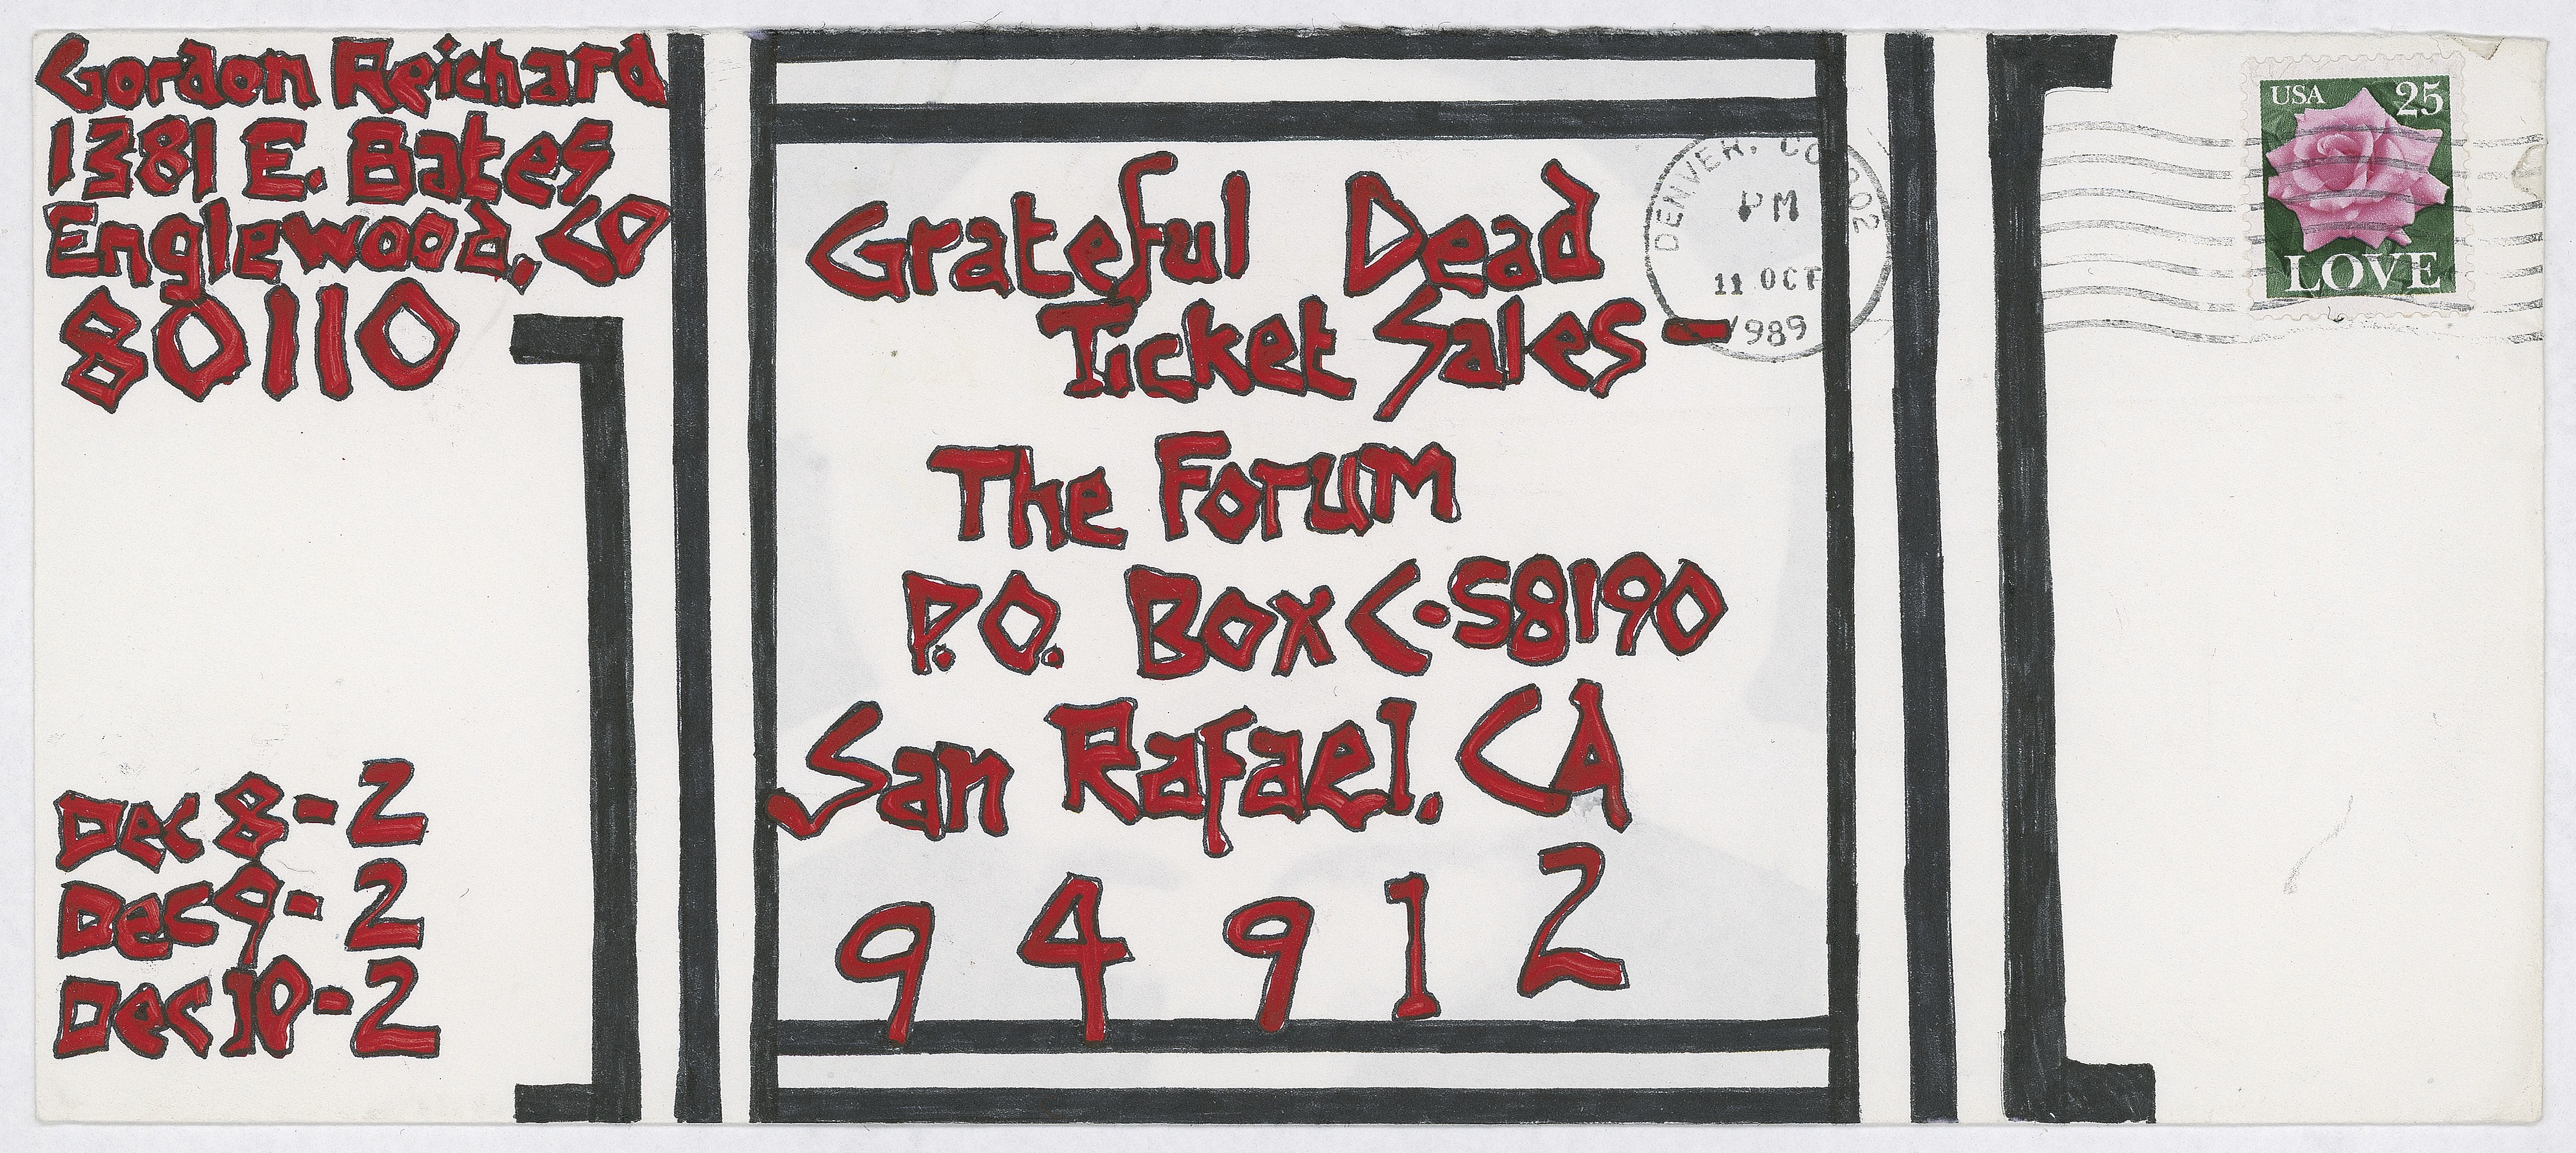 Gordon Reichard
1381 E. Bates
Englewood, CO
80110
Dec 8 - 2
Dec 9 - 2
Dec 10 - 2
Grateful Dead
Ticket Sales -
The Forum
P.O. Box C-S8190
San Rafael, CA
94912
DENVER, CO 802
PM
11 OCT
1989
USA 25
LOVE